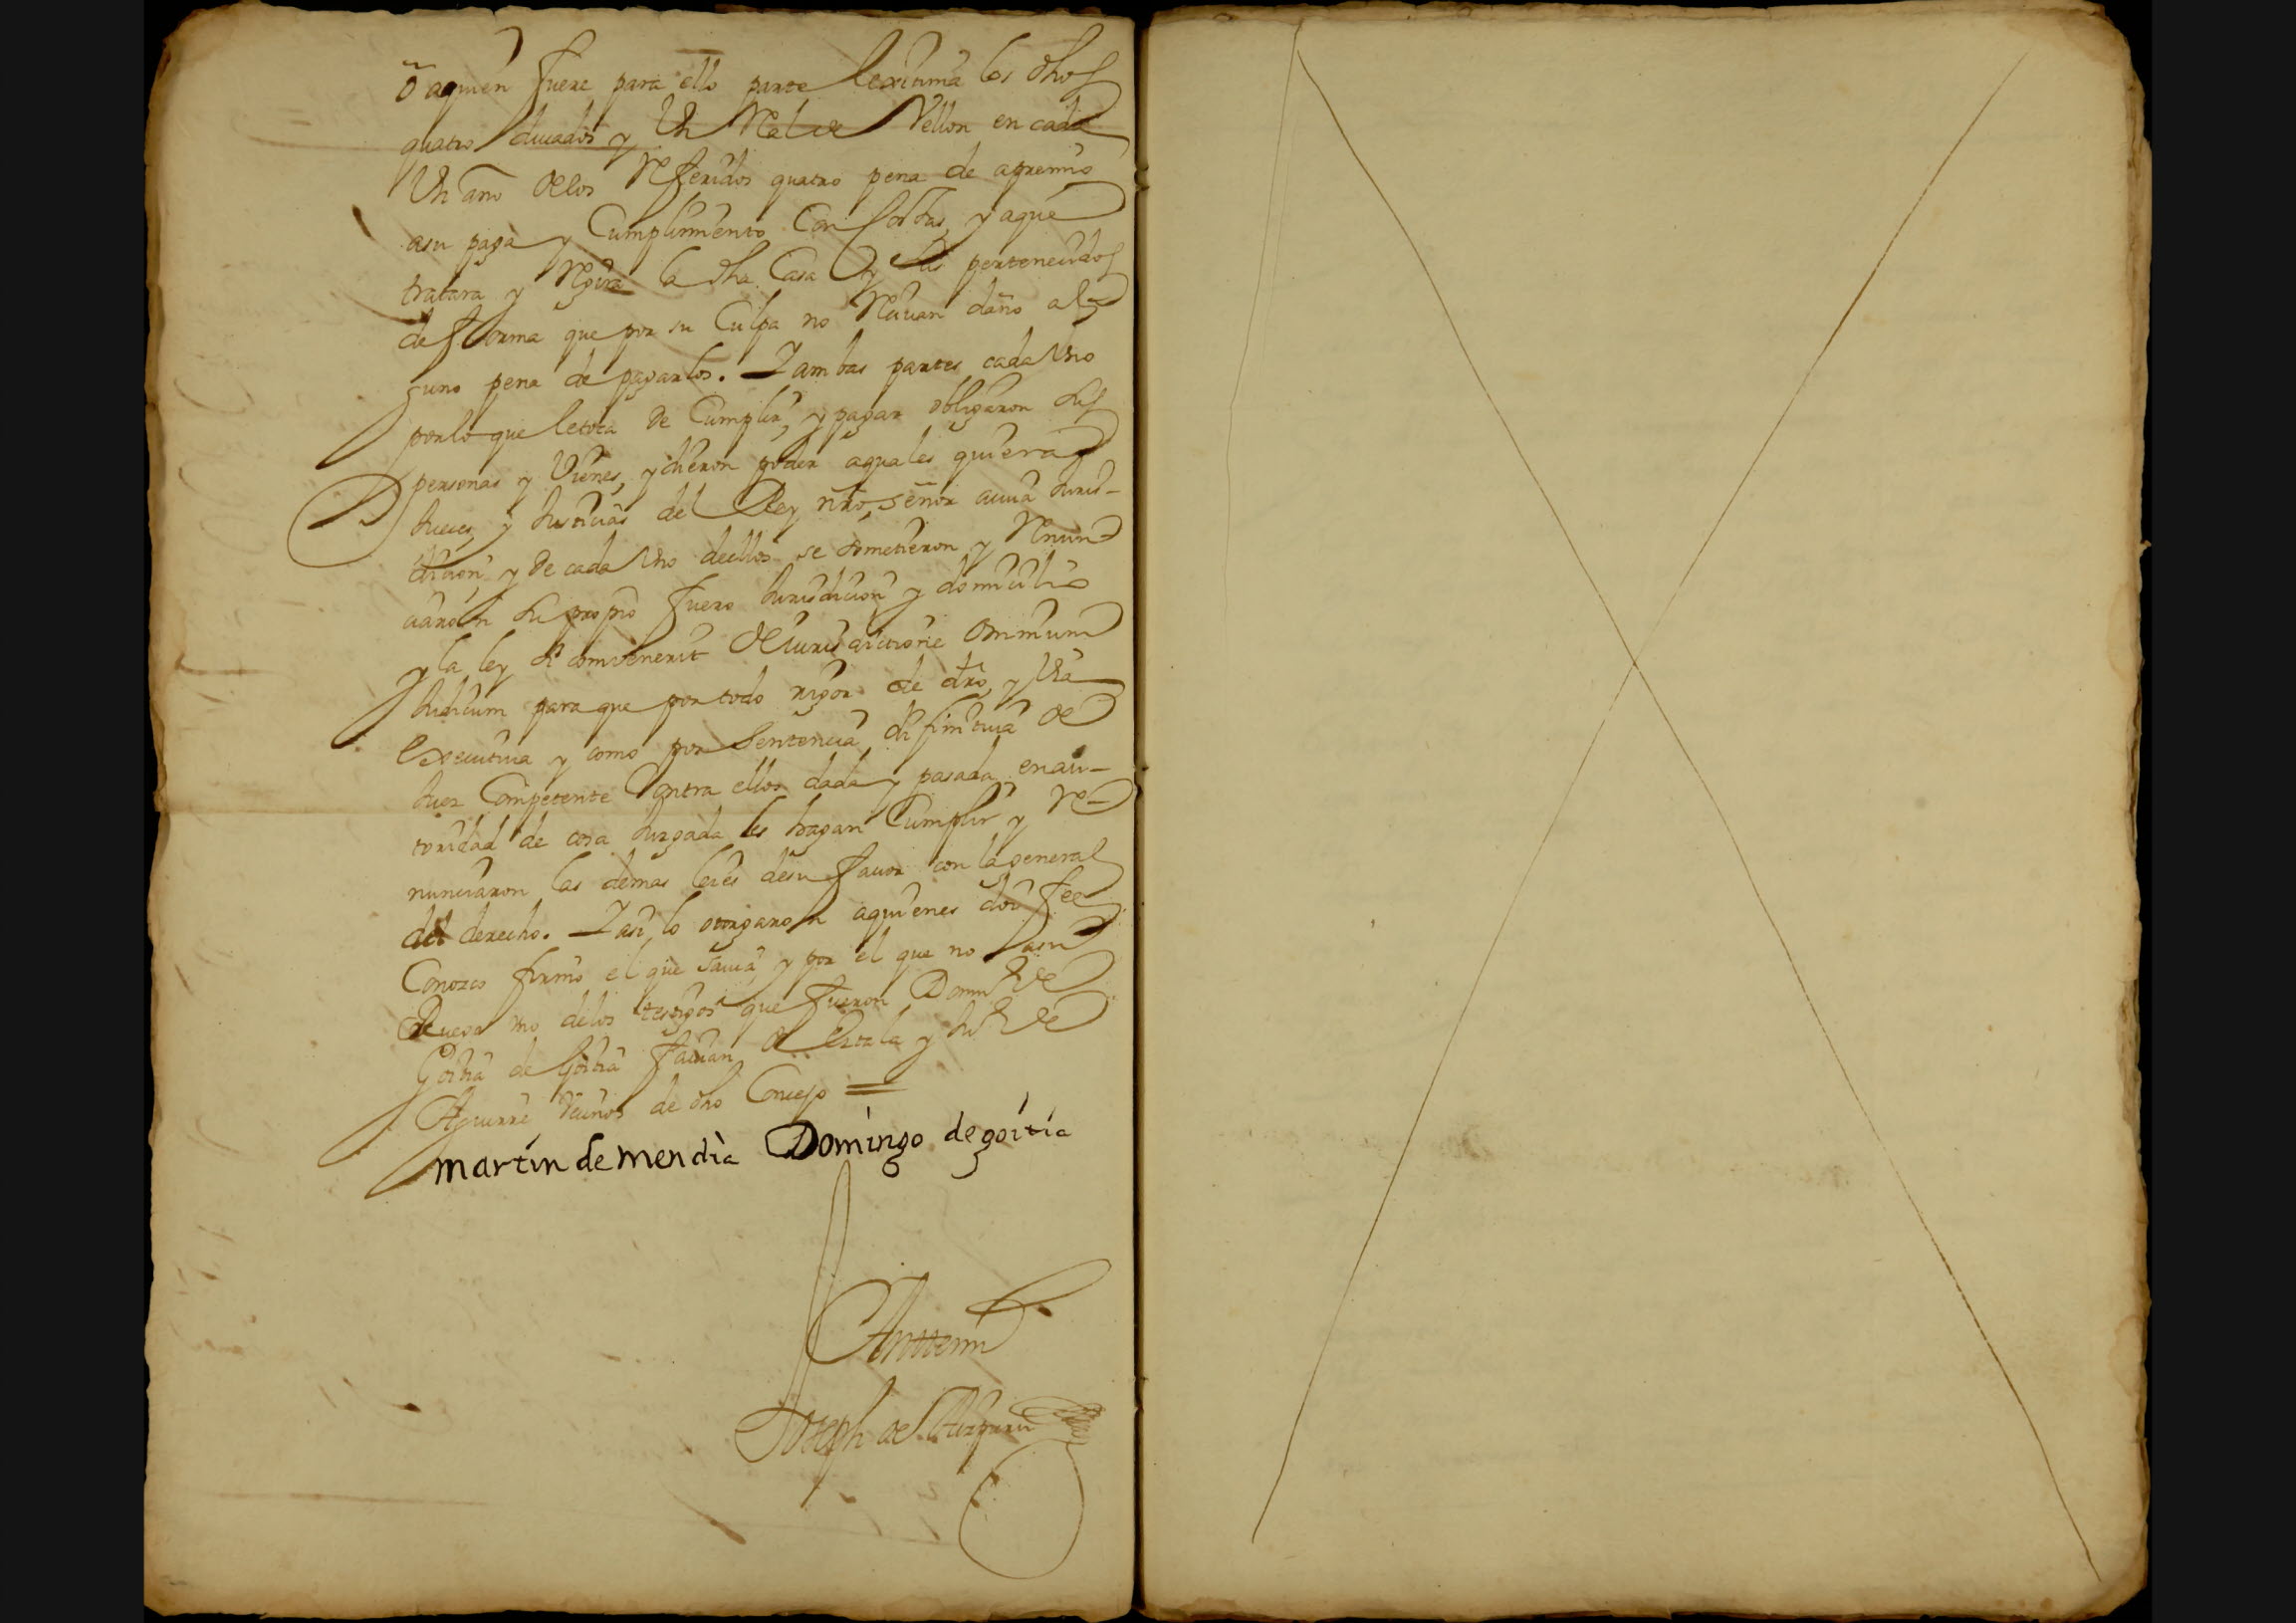 õ aquien fuere para ello parte lexitima los dhos
quatro ducados y Un Real de Vellon en cada
Un año de los Referidos quatro pena de apremio
asu paga y Cumplimiento Con costas, y aque
tratara y Regira la dha Casa y sus pertenecidos
de forma que por su Culpa no Reciuan daño al
guno pena de pagarlos. Y ambas partes cada Uno
por lo que le toca de Cumplir, y pagar obligaron sus
personas y Vienes, y dieron poder aquales quiera
Jueces, y Justicias del Rey nro, señor acuia Juris-
dicion, y de cada Uno dellos se sometieron y Renun
ciaron su propio fuero Jurisdicion y domicilio
y la ley si convenerit de iurisdictione omnium
Judicum para que por todo rigor de dro, y Via
executiua y como por Sentencia difinitiua de
Juez Competente Contra ellos dada y pasada en au-
toridad de cosa Juzgada les hagan Cumplir y Re-
nunciaron las demas leies desu fauor con la general
del derecho. Y asi lo otorgaron aquienes doi fee
Conozco firmo el que sauia y por el que no asu
Ruego Uno delos testigos que fueron Domin de
Goitia de Goitia de y Ju de
Aguirre Vecinos de dho Concejo =
martin de mendia Domingo de goitia
Antemi
Joseph de